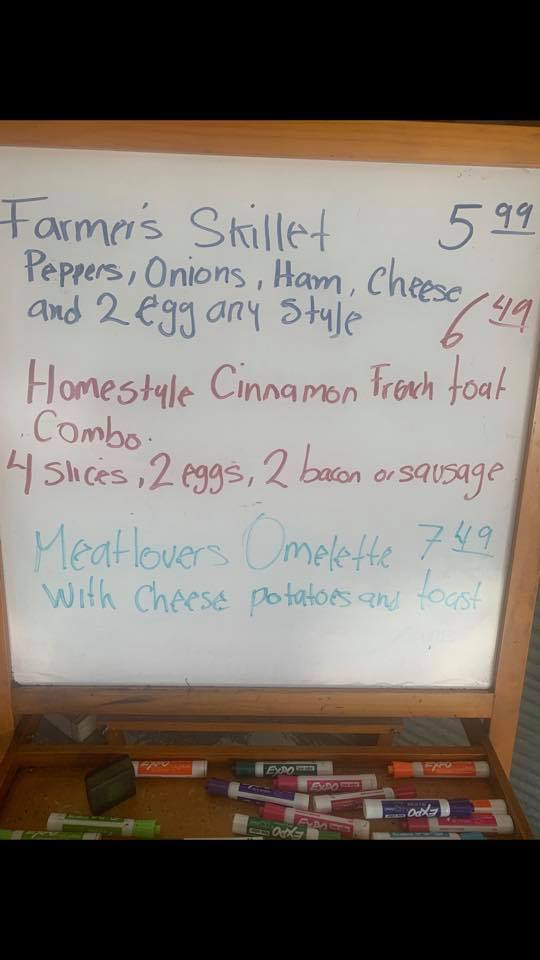 Farmer's Skillet 5 99
Peppers, Onions, Ham, Cheese
and 2 egg any style
6 49
Homestyle Cinnamon French toat
Combo.
4 slices, 2 eggs, 2 bacon or sausage
Meatlovers Omelette 7 49
with cheese potatoes and toast
EXPO
EXPO
EXPO
EXPO
EXPO
EXPO
EXPO
EXPO
EXPO